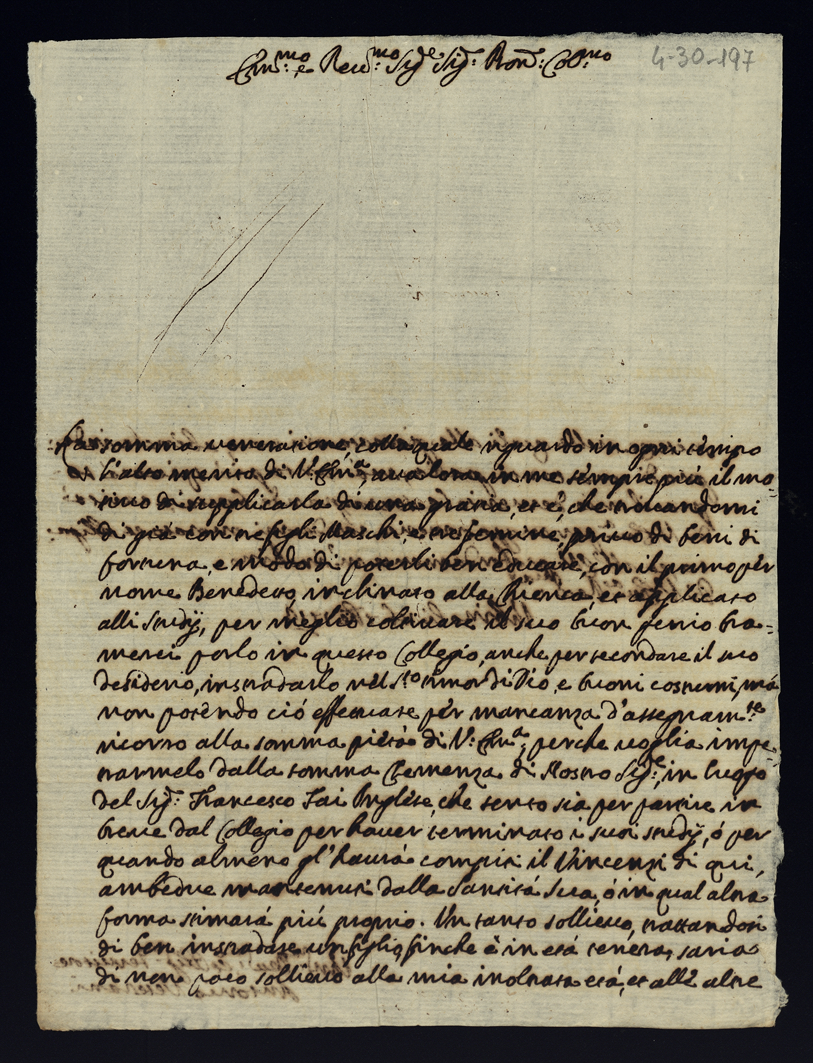 Em.mo e Reu.mo Sig.e Sig.r Pron. Col.mo
4-30-197
La somma ueneratione, colla quale riguardo in ogni tempo
l'alto merito di V. Em.a, aualora in me sempre più il mo=
tiuo di supplicarla di una gratia, et è, che trouandomi
di già con tre figli Maschi, e tre femine, priuo di beni di
fortuna, e modo di poterli ben educare, con il primo per
nome Benedetto, inclinato alla Chierica, et applicato
alli studij, per meglio coltiuare il suo buon genio bra=
merei porlo in questo Collegio, anche per secondare il suo
desiderio, instradarlo nel S.to timor di Dio, e buoni costumi, mà
non potendo ciò effettuare per mancanza d'assegnam.te
ricorro alla somma pietà di V. Em.a, perche uoglia impe=
trarmelo dalla somma Clemenza di Nostro Sig.e, in luogo
del Sig.r Francesco Fai Inglese, che sento sia per partire in
breue dal Collegio per hauer terminato i suoi studij, ò per
quando almeno gl'haurà compiti il Vincenzi di qui,
ambedue mantenuti dalla Santità Sua, ò in qual altra
forma stimarà più proprio. Un tanto sollieuo, trattandosi
di ben instradare un figlio, finche è in età tenera, saria
di non poco sollieuo alla mia inoltrata età, et all' altre